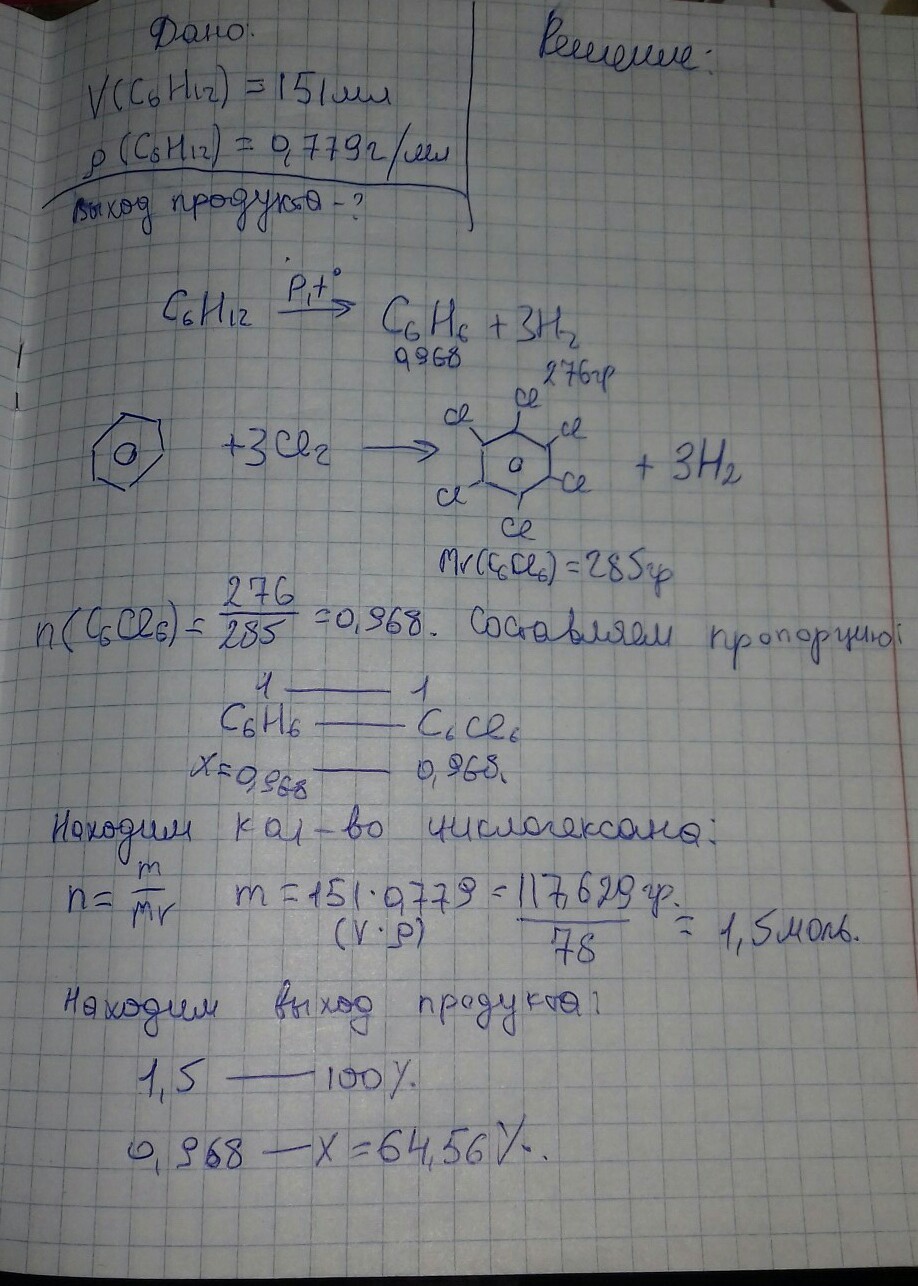 Дано:
Решение:
V(C₆H₁₂) = 151мл
ρ(C₆H₁₂) = 0,779г/мл
Выход продукта-?
C₆H₁₂ p,t° → C₆H₆ + 3H₂
0,968
276гр
+3Cl₂ → Cl Cl Cl Cl Cl Cl + 3H₂
Mr(C₆Cl₆) = 285гр
n(C₆Cl₆) = 276/285 = 0,968. Составляем пропорцию:
1 — 1
C₆H₆ — C₆Cl₆
x=0,968 — 0,968.
Находим кол-во циклогексана:
n = m/Mr m = 151·0,779 = 117,629гр./78 = 1,5моль.
(V·ρ)
Находим выход продукта:
1,5 — 100%.
0,968 — X = 64,56%.